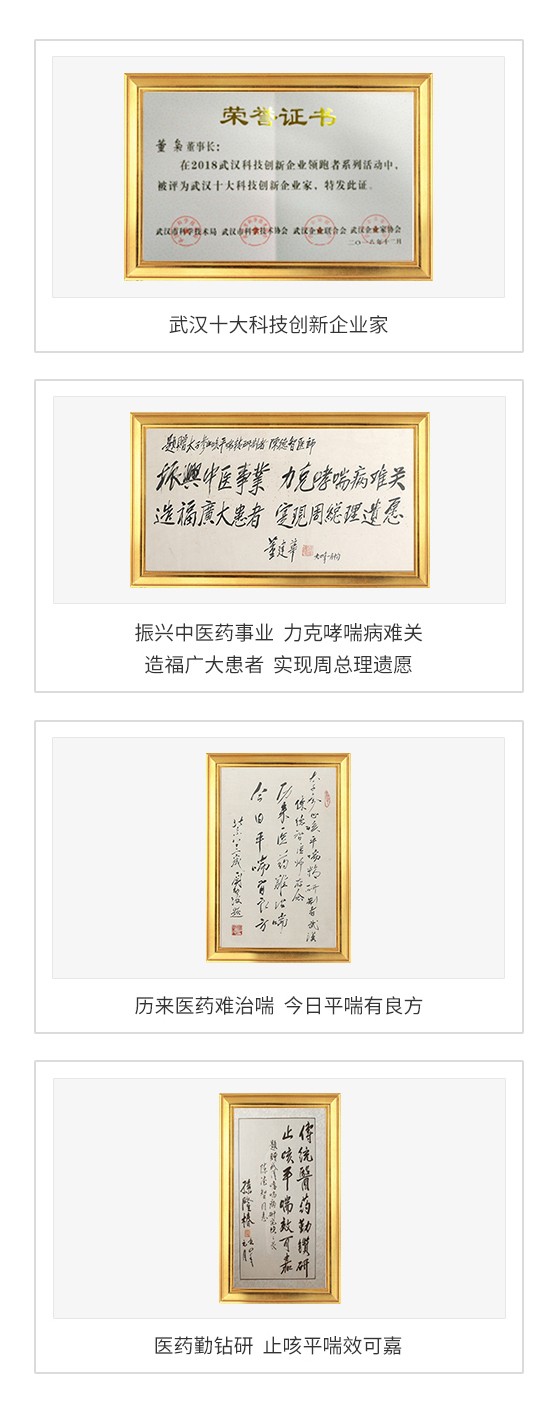 荣誉证书
董 枭董事长:
在2018武汉科技创新企业领跑者系列活动中,
被评为武汉十大科技创新企业家, 特发此证。
武汉市科学技术局 武汉市科学技术协会 武汉企业联合会 武汉企业家协会
二〇一八年十二月
武汉十大科技创新企业家
振興中医事業 力克哮喘病难关
造福廣大患者 实现周総理遗愿
董建華
振兴中医药事业 力克哮喘病难关
造福广大患者 实现周总理遗愿
历来医药难治喘
今日平喘有良方
历来医药难治喘 今日平喘有良方
傳統醫药勤鑽研
止咳平喘效可嘉
孫隆椿
医药勤钻研 止咳平喘效可嘉